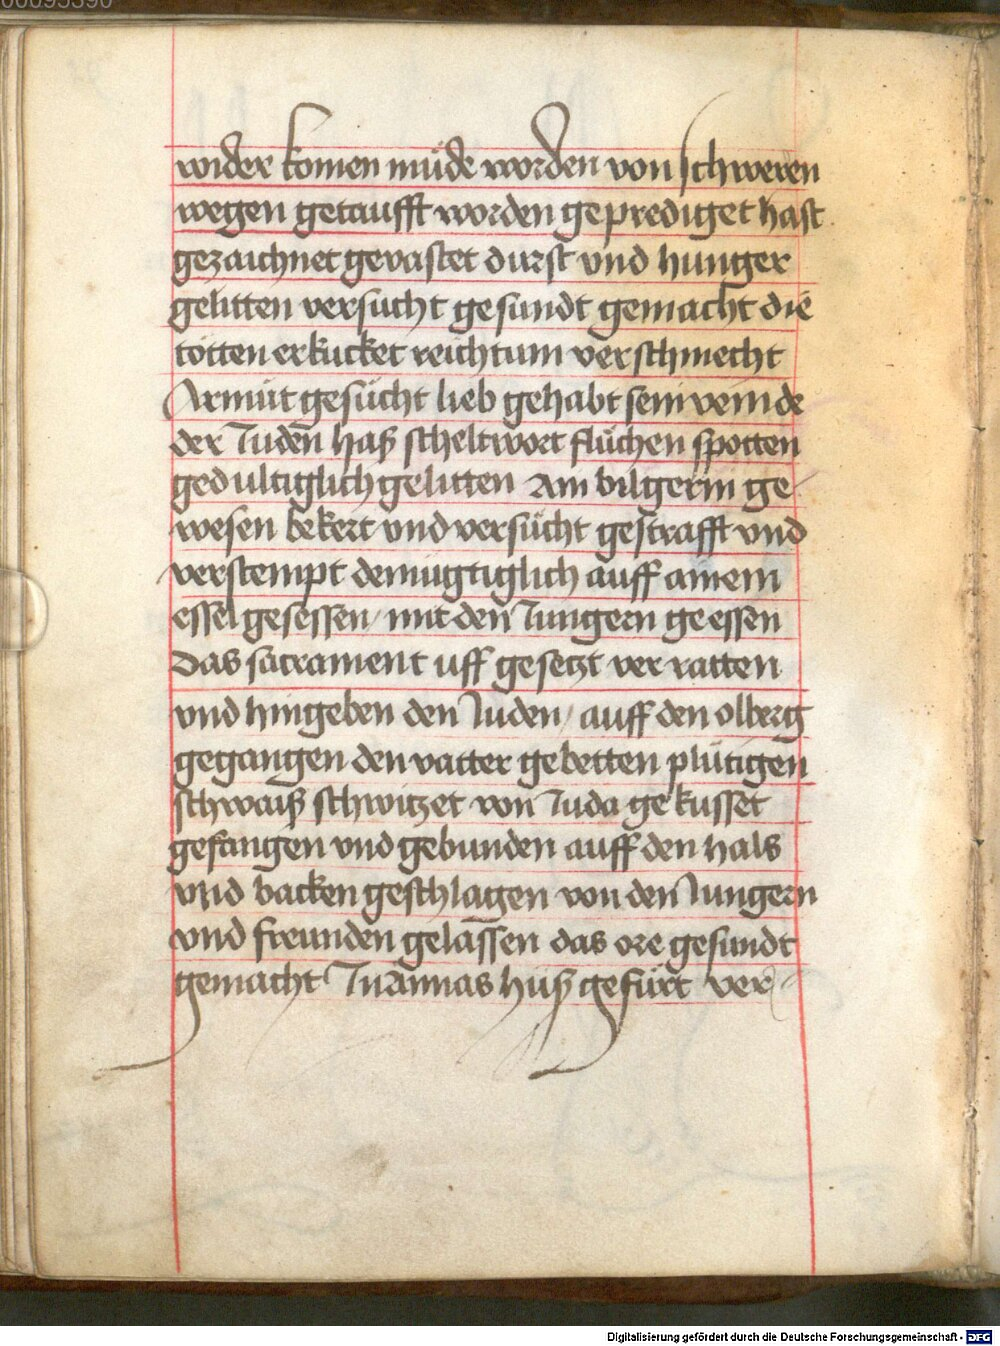 00095390
wider komen müde worden von schweren
wegen getaufft worden geprediget hast
gezaichnet gevastet durst vnd hunger
gelitten versucht gesundt gemacht die
totten erkucket reichtum verschmecht
Armüt gesücht lieb gehabt sein veinde
der Juden haß scheltwort flüchen spotten
gedultiglich gelitten Am bilgerin ge
wesen bekert vnd versücht gestrafft vnd
verstempt demügtiglich auff ainem
essel gesessen / mit den Jungern geessen
das sacrament uff gesetzt ver ratten
vnd hingeben den Juden / auff den olberg
gegangen den vatter gebetten plütigen
schwaiß schwitzet von Juda gekusset
gefangen vnd gebunden auff den hals
vnd backen geschlagen von den Jungern
vnd freunden gelassen das ore gesundt
gemacht In Annas huß gefürt ver
Digitalisierung gefördert durch die Deutsche Forschungsgemeinschaft - DFG